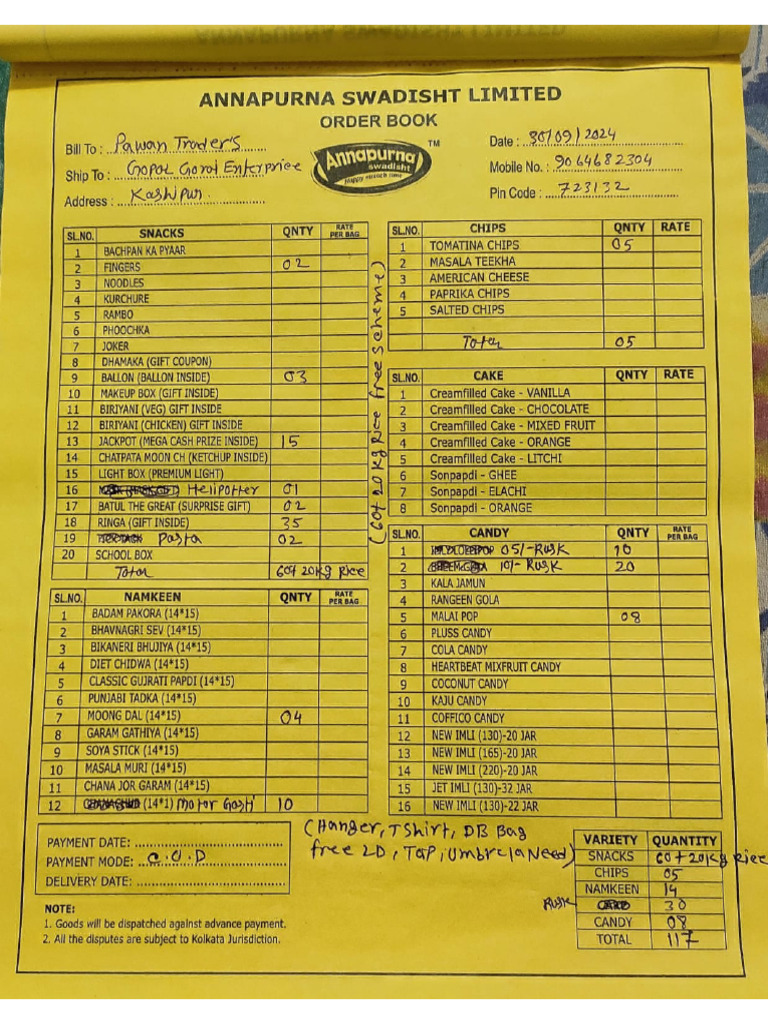 ANNAPURNA SWADISHT LIMITED
ORDER BOOK
Bill To : Pawan Trader's
Ship To : Gopal Gorai Enterprice
Address : Kashipur
Annapurna swadisht TM
Date : 30/09/2024
Mobile No. : 9064682304
Pin Code : 723132
SL.NO. SNACKS QNTY RATE PER BAG
1 BACHPAN KA PYAAR
2 FINGERS 02
3 NOODLES
4 KURCHURE
5 RAMBO
6 PHOOCHKA
7 JOKER
8 DHAMAKA (GIFT COUPON)
9 BALLON (BALLON INSIDE) 03
10 MAKEUP BOX (GIFT INSIDE)
11 BIRIYANI (VEG) GIFT INSIDE
12 BIRIYANI (CHICKEN) GIFT INSIDE
13 JACKPOT (MEGA CASH PRIZE INSIDE) 15
14 CHATPATA MOON CH (KETCHUP INSIDE)
15 LIGHT BOX (PREMIUM LIGHT)
16 Helipotter 01
17 BATUL THE GREAT (SURPRISE GIFT) 02
18 RINGA (GIFT INSIDE) 35
19 Pasta 02
20 SCHOOL BOX
Total 60+20kg Rice
(60+20 kg Rice free scheme)
SL.NO. NAMKEEN QNTY RATE PER BAG
1 BADAM PAKORA (14*15)
2 BHAVNAGRI SEV (14*15)
3 BIKANERI BHUJIYA (14*15)
4 DIET CHIDWA (14*15)
5 CLASSIC GUJRATI PAPDI (14*15)
6 PUNJABI TADKA (14*15)
7 MOONG DAL (14*15) 04
8 GARAM GATHIYA (14*15)
9 SOYA STICK (14*15)
10 MASALA MURI (14*15)
11 CHANA JOR GARAM (14*15)
12 (14*1) Motor Gosti 10
SL.NO. CHIPS QNTY RATE
1 TOMATINA CHIPS 05
2 MASALA TEEKHA
3 AMERICAN CHEESE
4 PAPRIKA CHIPS
5 SALTED CHIPS
Total 05
SL.NO. CAKE QNTY RATE
1 Creamfilled Cake - VANILLA
2 Creamfilled Cake - CHOCOLATE
3 Creamfilled Cake - MIXED FRUIT
4 Creamfilled Cake - ORANGE
5 Creamfilled Cake - LITCHI
6 Sonpapdi - GHEE
7 Sonpapdi - ELACHI
8 Sonpapdi - ORANGE
SL.NO. CANDY QNTY RATE PER BAG
1 05/- Rusk 10
2 10/- Rusk 20
3 KALA JAMUN
4 RANGEEN GOLA
5 MALAI POP 08
6 PLUSS CANDY
7 COLA CANDY
8 HEARTBEAT MIXFRUIT CANDY
9 COCONUT CANDY
10 KAJU CANDY
11 COFFICO CANDY
12 NEW IMLI (130)-20 JAR
13 NEW IMLI (165)-20 JAR
14 NEW IMLI (220)-20 JAR
15 JET IMLI (130)-32 JAR
16 NEW IMLI (130)-22 JAR
(Hanger, T Shirt, DB Bag
free 2D, Tap, Umbrela Need)
PAYMENT DATE:
PAYMENT MODE: C.O.D
DELIVERY DATE:
NOTE:
1. Goods will be dispatched against advance payment.
2. All the disputes are subject to Kolkata Jurisdiction.
VARIETY QUANTITY
SNACKS 60+20kg Rice
CHIPS 05
NAMKEEN 14
Rusk 30
CANDY 08
TOTAL 117